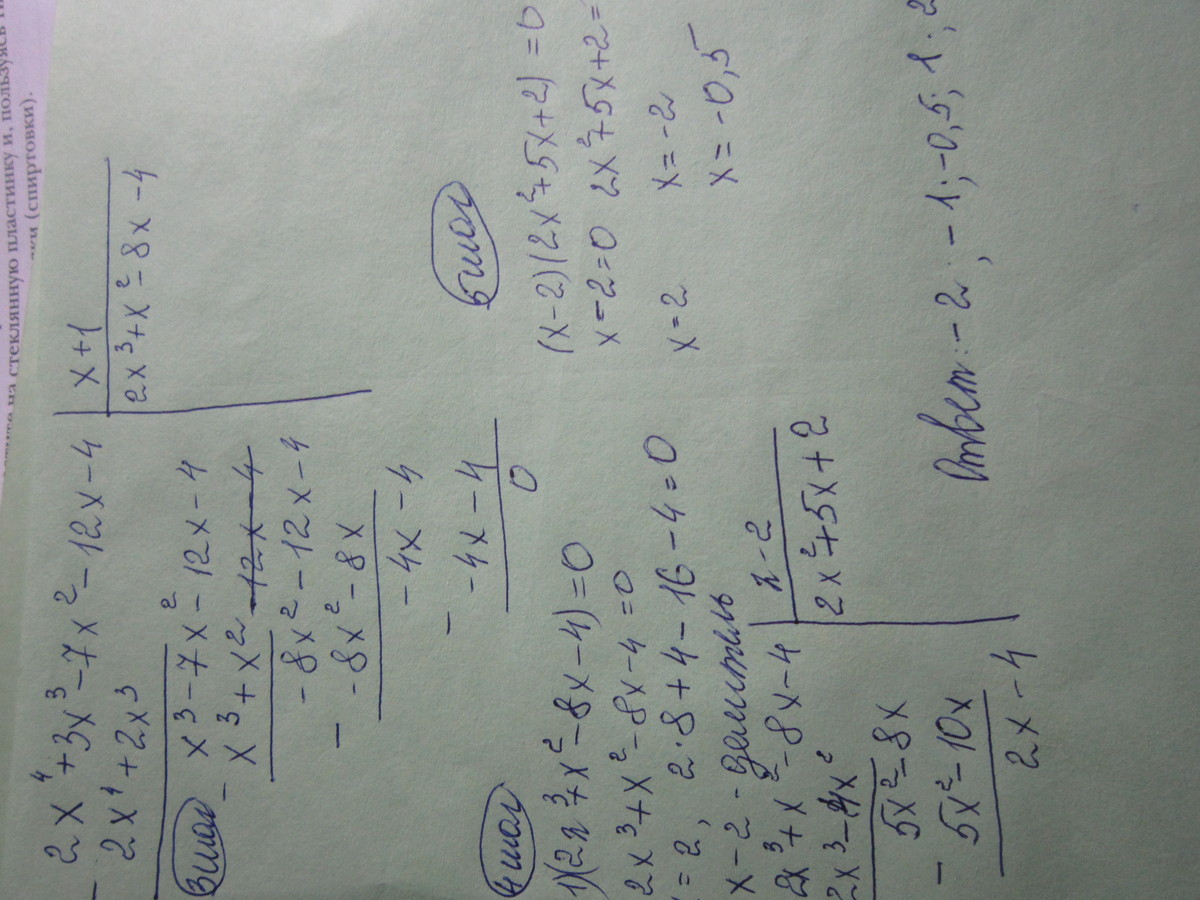 на стеклянную пластинку и, пользуясь
(спиртовки).
2x⁴+3x³-7x²-12x-4 | x+1
2x⁴+2x³ | 2x³+x²-8x-4
3 шаг
x³-7x²-12x-4
- x³+x² -12x-4
-8x²-12x-4
- -8x²-8x
-4x-4
- -4x-4
0
4 шаг
1)(2x³+x²-8x-4)=0
2x³+x²-8x-4=0
=2, 2·8+4-16-4=0
x-2 - делитель
2x³+x²-8x-4 | x-2
2x³-4x² | 2x²+5x+2
5x²-8x
- 5x²-10x
2x-4
5 шаг
(x-2)(2x²+5x+2)=0
x-2=0 2x²+5x+2=
x=2 x=-2
x=-0,5
Ответ: -2; -1; -0,5; 1; 2